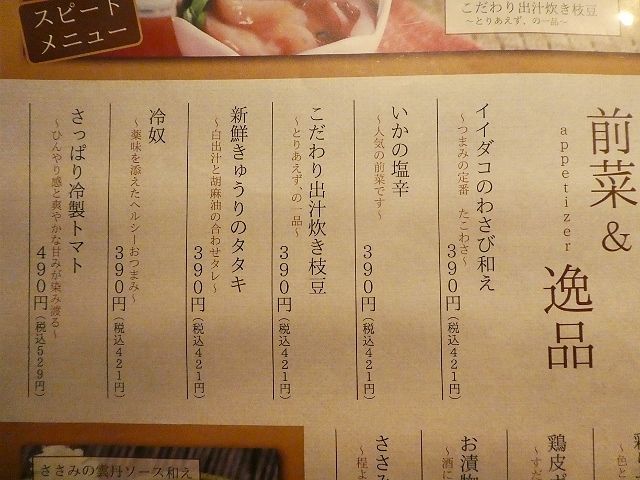 スピード
メニュー
こだわり出汁炊き枝豆
～とりあえず、の一品～
前菜&
appetizer
逸品
イイダコのわさび和え
～つまみの定番 たこわさ～
390円(税込421円)
いかの塩辛
～人気の前菜です～
390円(税込421円)
こだわり出汁炊き枝豆
～とりあえず、の一品～
390円(税込421円)
新鮮きゅうりのタタキ
～白出汁と胡麻油の合わせタレ～
390円(税込421円)
冷奴
～薬味を添えたヘルシーおつまみ～
390円(税込421円)
さっぱり冷製トマト
～ひんやり感と爽やかな甘みが染み渡る～
490円(税込529円)
鶏皮ポ
～すだ
お漬物
～酒に
ささみ
～程よ
ささみの雲丹ソース和え